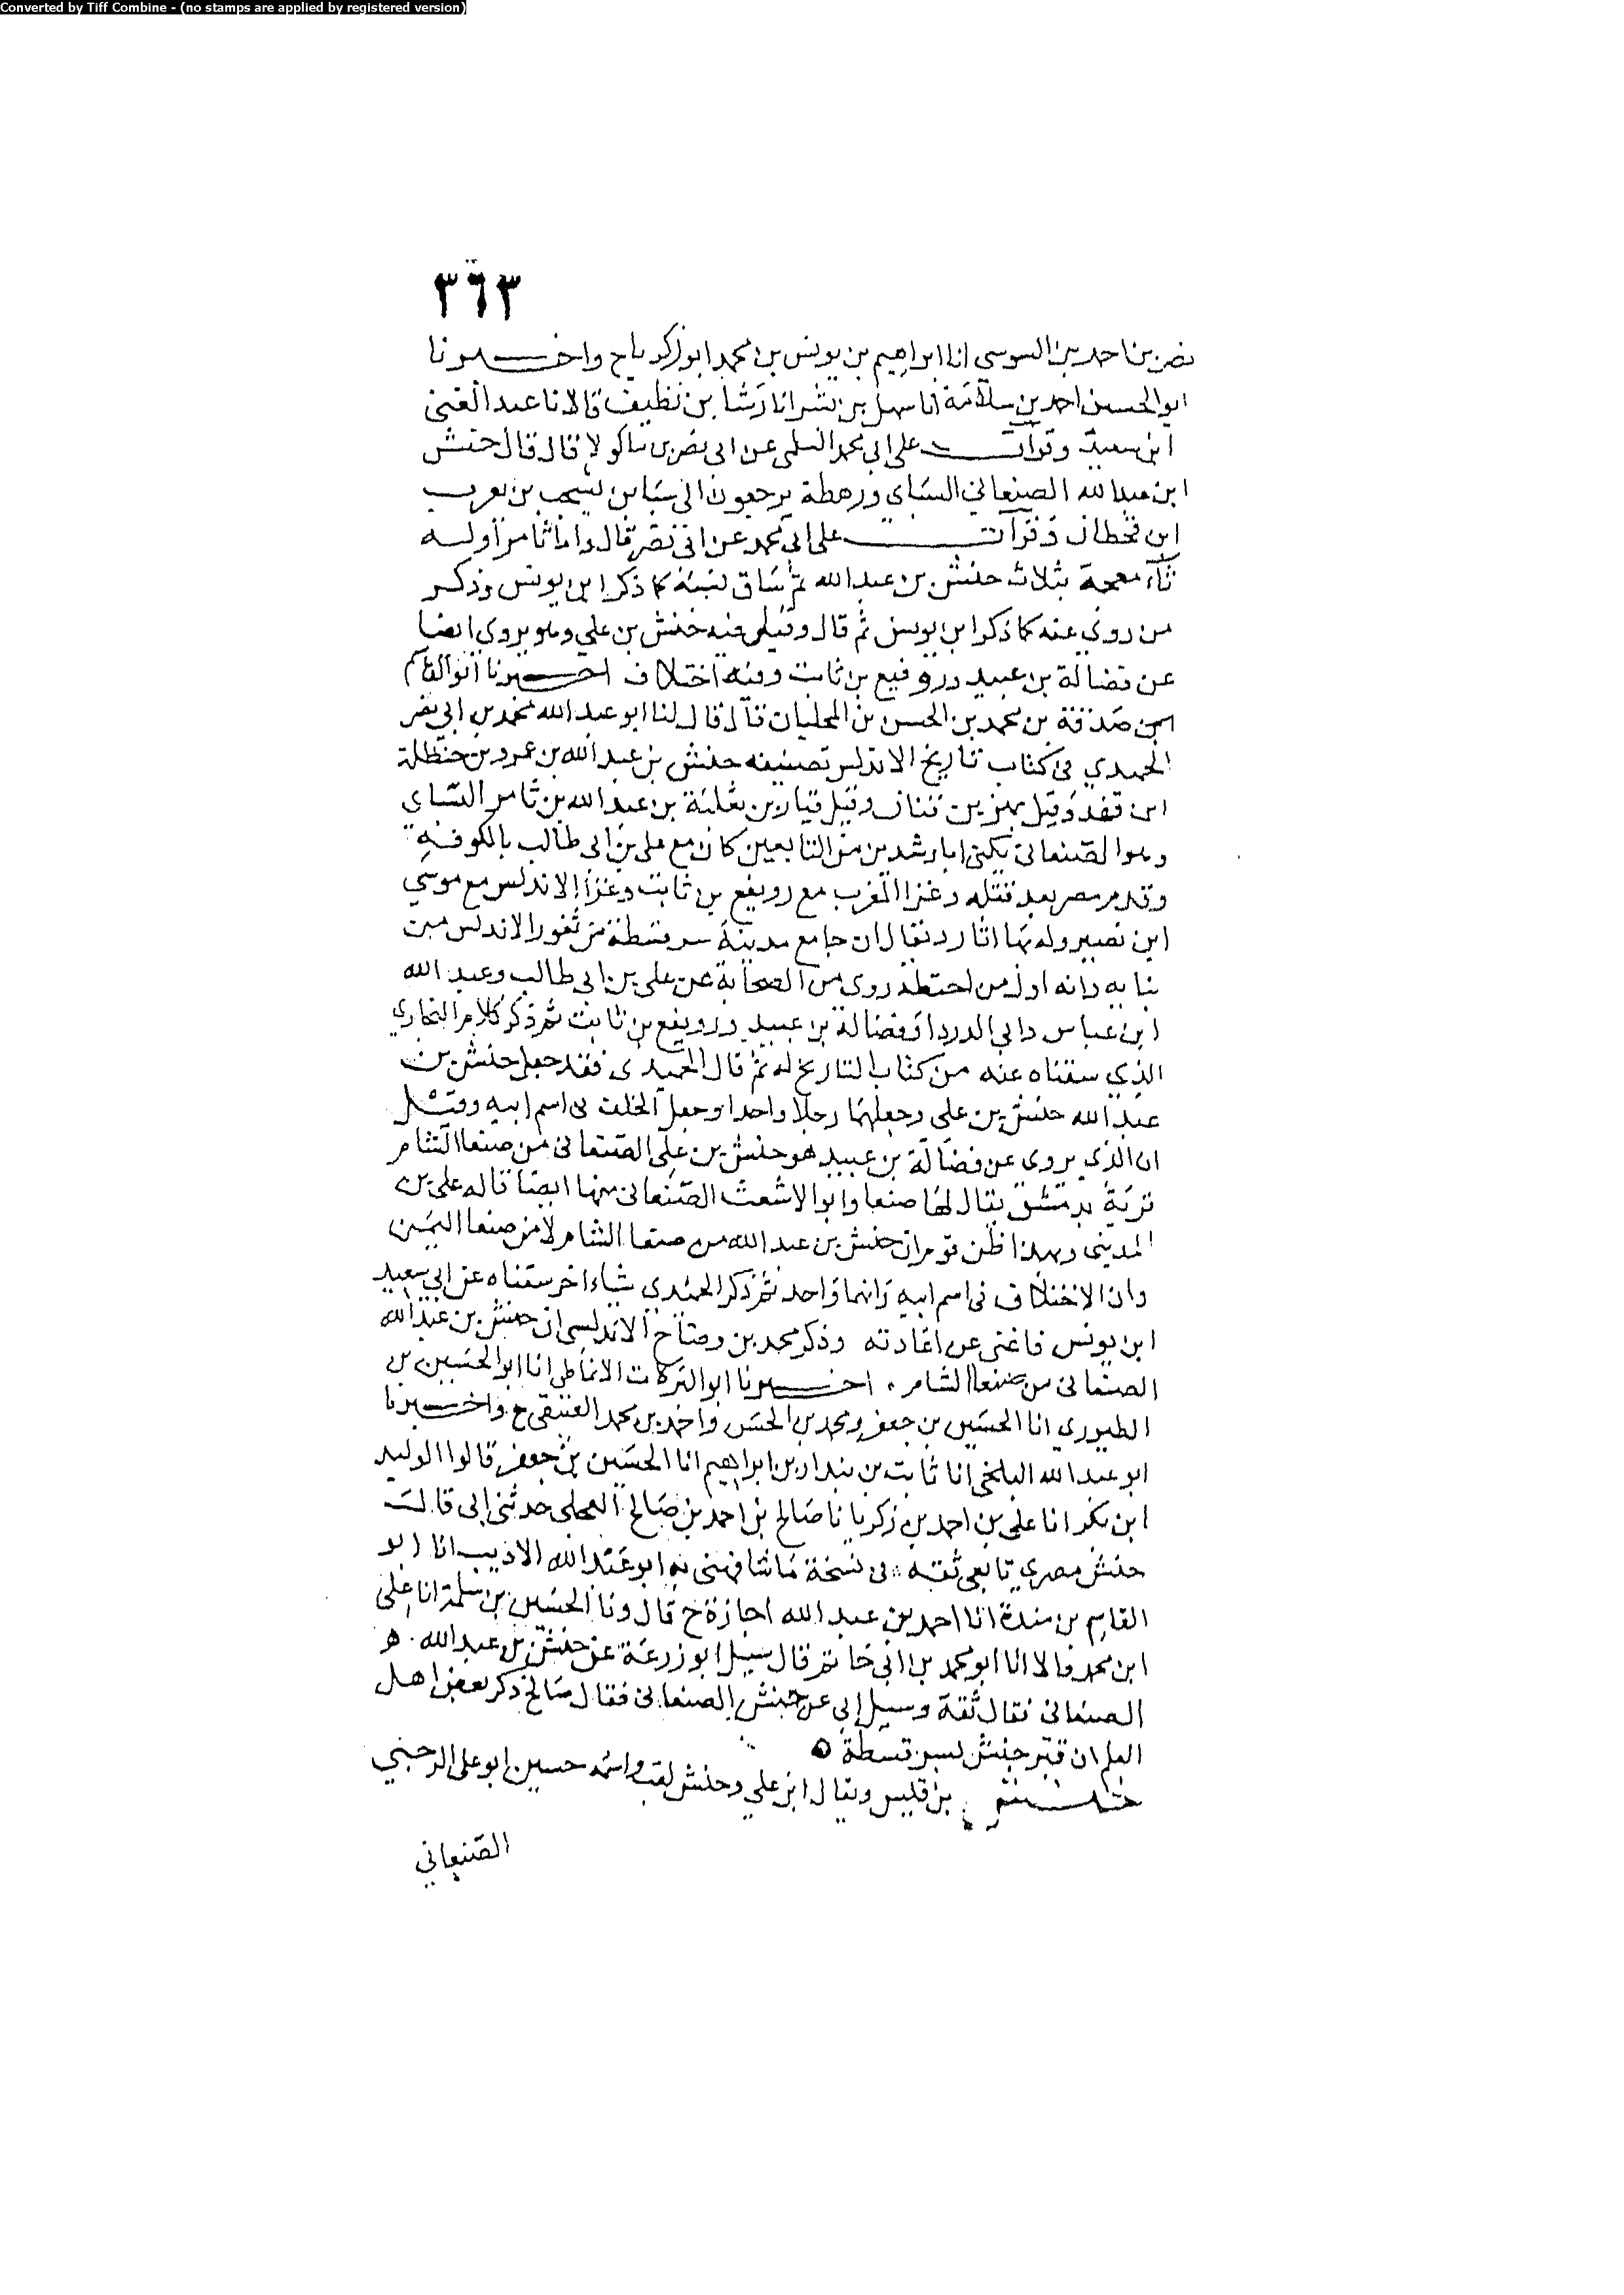 Converted by Tiff Combine - (no stamps are applied by registered version)
٣٦٣
نصر بن احمد بن السوسي انا ابراهيم بن يونس بن محمد ابو زكريا ح واخبرنا
ابو الحسين احمد بن سلامة انا سهل بن بشر انا رشا بن نظيف قالا نا عبد الغني
ابن سعيد وقرات على ابي محمد السلمي عن ابي نصر بن ماكولا قال قال حنش
ابن عبد الله الصنعاني السباي ورهطه يرجعون الى سبا بن يشجب بن يعرب
ابن قحطان وقرات على ابي محمد عن ابي نصر قال واما ثامر اوله
ثاء معجمة بثلاث حنش بن عبد الله ثم ساق نسبه كما ذكر ابن يونس وذكر
من روى عنه كما ذكر ابن يونس ثم قال وقيل فيه حنش بن علي وهو يروي ايضا
عن فضالة بن عبيد ورويفع بن ثابت وفيه اختلاف اخبرنا ابو القاسم
ابن صدقة بن محمد بن الحسن بن المحلبان قال قال لنا ابو عبد الله محمد بن ابي نصر
الحميدي في كتاب تاريخ الاندلس تصنيفه حنش بن عبد الله بن عمرو بن حنظلة
ابن فهد وقيل بهز بن قنان وقيل قيان بن ثعلبة بن عبد الله بن ثامر السباي
وهو الصنعاني يكنى ابا رشدين من التابعين كان مع علي بن ابي طالب بالكوفة
وقدم مصر بعد قتله وغزا المغرب مع رويفع بن ثابت وغزا الاندلس مع موسى
ابن نصير وله بها اثار ويقال ان جامع مدينة سرقسطة من ثغور الاندلس من
بنايه وانه اول من اختطه روى من الصحابة عن علي بن ابي طالب وعبد الله
ابن عباس وابي الدرداء وفضالة بن عبيد ورويفع بن ثابت ثم ذكر كلام البخاري
الذي سقناه عنه من كتاب التاريخ له ثم قال الحميدي فقد جعل حنش بن
عبد الله حنش بن علي وجعلهما رجلا واحدا وجعل الخلف في اسم ابيه وقيل
ان الذي يروى عن فضالة بن عبيد هو حنش بن علي الصنعاني من صنعا الشام
قرية بدمشق يقال لها صنعا وابو الاشعث الصنعاني منها ايضا قاله علي بن
المديني وبهذا ظن قوم ان حنش بن عبد الله من صنعا الشام لا من صنعا اليمن
وان الاختلاف في اسم ابيه وانهما واحد ثم ذكر الحميدي شيا اخر سقناه عن ابي سعيد
ابن يونس فاغنى عن اعادته وذكر محمد بن وضاح الاندلسي ان حنش بن عبد الله
الصنعاني من صنعا الشام . اخبرنا ابو البركات الانماطي انا ابو الحسين بن
الطيوري انا الحسين بن جعفر ومحمد بن الحسن واحمد بن محمد العتيقي ح واخبرنا
ابو عبد الله البلخي انا ثابت بن بندار بن ابراهيم انا الحسين بن جعفر قالوا الوليد
ابن بكر انا علي بن احمد بن زكريا نا صالح بن احمد بن صالح العجلي حدثني ابي قال
حنش مصري تابعي ثقه في نسخة ما شافهني به ابو عبد الله الاديب انا ابو
القاسم بن مندة انا احمد بن عبد الله اجازة ح قال ونا الحسين بن سلمة انا علي
ابن محمد قالا انا ابو محمد بن ابي حاتم قال سيل ابو زرعة عن حنش بن عبد الله
الصنعاني فقال ثقة وسيل ابي عن حنش الصنعاني فقال صالح ذكر بعض اهل
العلم ان قبر حنش بسرقسطة
حنش بن قيس ويقال ابن علي وحنش لقب واسمه حسين ابو علي الرحبي
الصنعاني